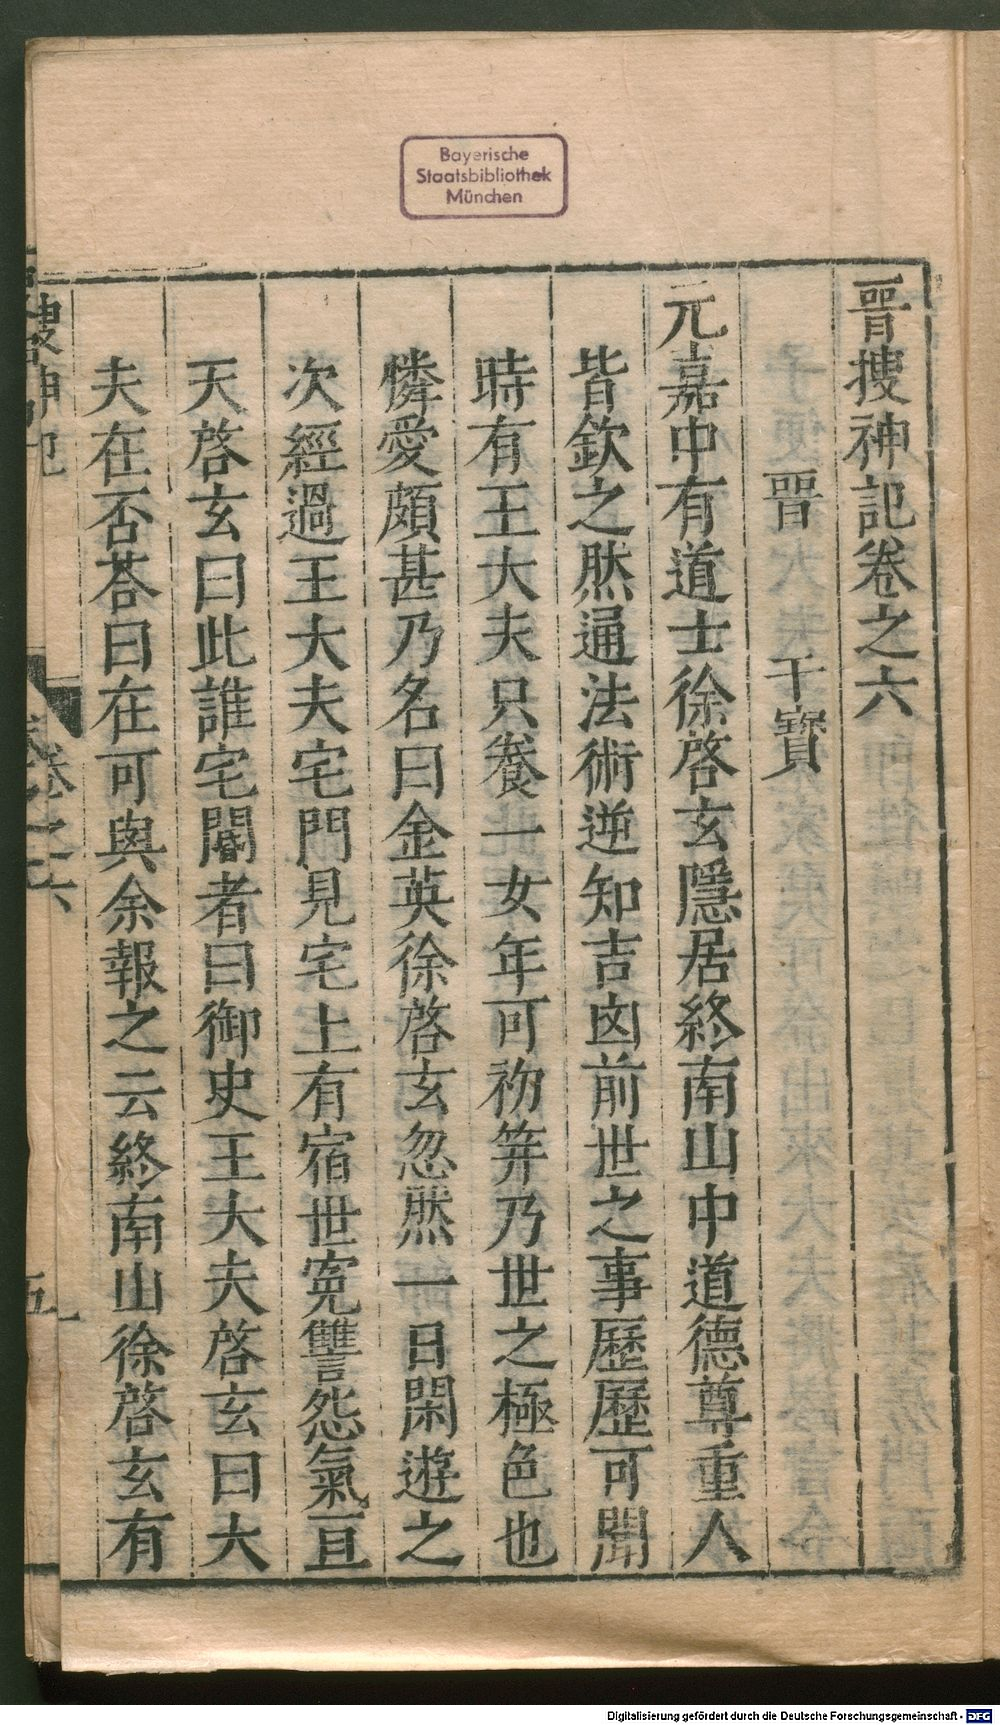 Bayerische
Staatsbibliothek
München
晋搜神記卷之六
晋 干寶
元嘉中有道士徐啓玄隱居終南山中道德尊重人
皆欽之然通法術逆知吉凶前世之事歷歷可聞
時有王大夫只養一女年可初笄乃世之極色也
憐愛頗甚乃名曰金英徐啓玄忽然一日閑遊之
次經過王大夫宅門見宅上有宿世寃讐怨氣亘
天啓玄曰此誰宅閽者曰御史王大夫啓玄曰大
夫在否荅曰在可與余報之云終南山徐啓玄有
搜神記
卷之六
一
Digitalisierung gefördert durch die Deutsche Forschungsgemeinschaft - DFG